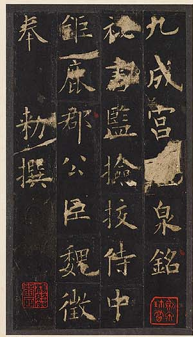 九成宫泉銘
秘書監撿挍侍中
鉅鹿郡公臣魏徴
奉勅撰